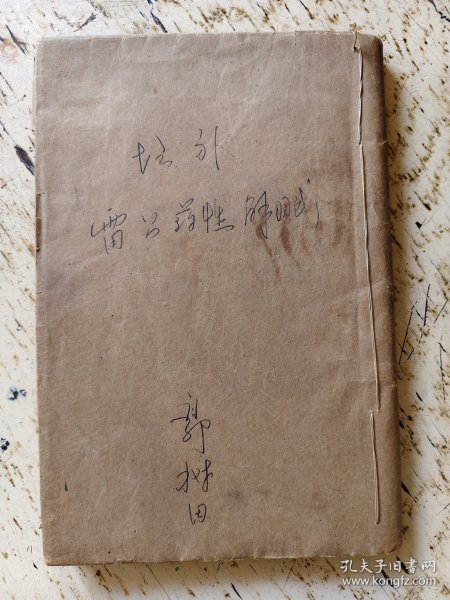 增补
雷公药性解賦
郭
树
田
孔夫子旧书网
www.kongfz.com